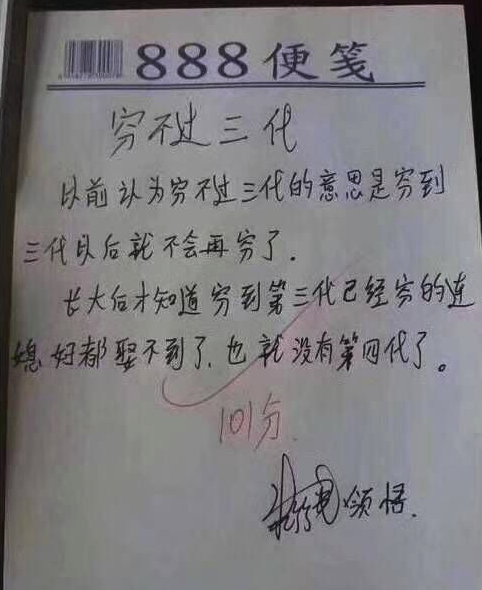 888便笺
穷不过三代
以前认为穷不过三代的意思是穷到
三代以后就不会再穷了.
长大后才知道穷到第三代已经穷的连
媳妇都娶不到了,也就没有第四代了。
101分.
领悟.